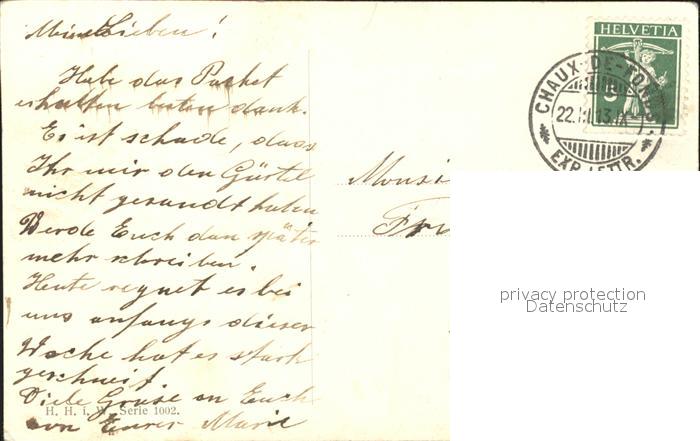 Meine Lieben!
Habe das Packet
erhalten besten dank.
Es ist schade, dass
Ihr mir den Gürtel
nicht gesandt haben
Werde Euch dan später
mehr schreiben.
Heute regnet es bei
uns anfangs dieser
Woche hat es stark
geschneit
Viele Grüse an Euch
von Eurer Marie
H. H. i. W. Serie 1002.
HELVETIA
5
CHAUX-DE-FONDS
22.III.13.IX
EXP. LETTR.
Monsi
privacy protection
Datenschutz